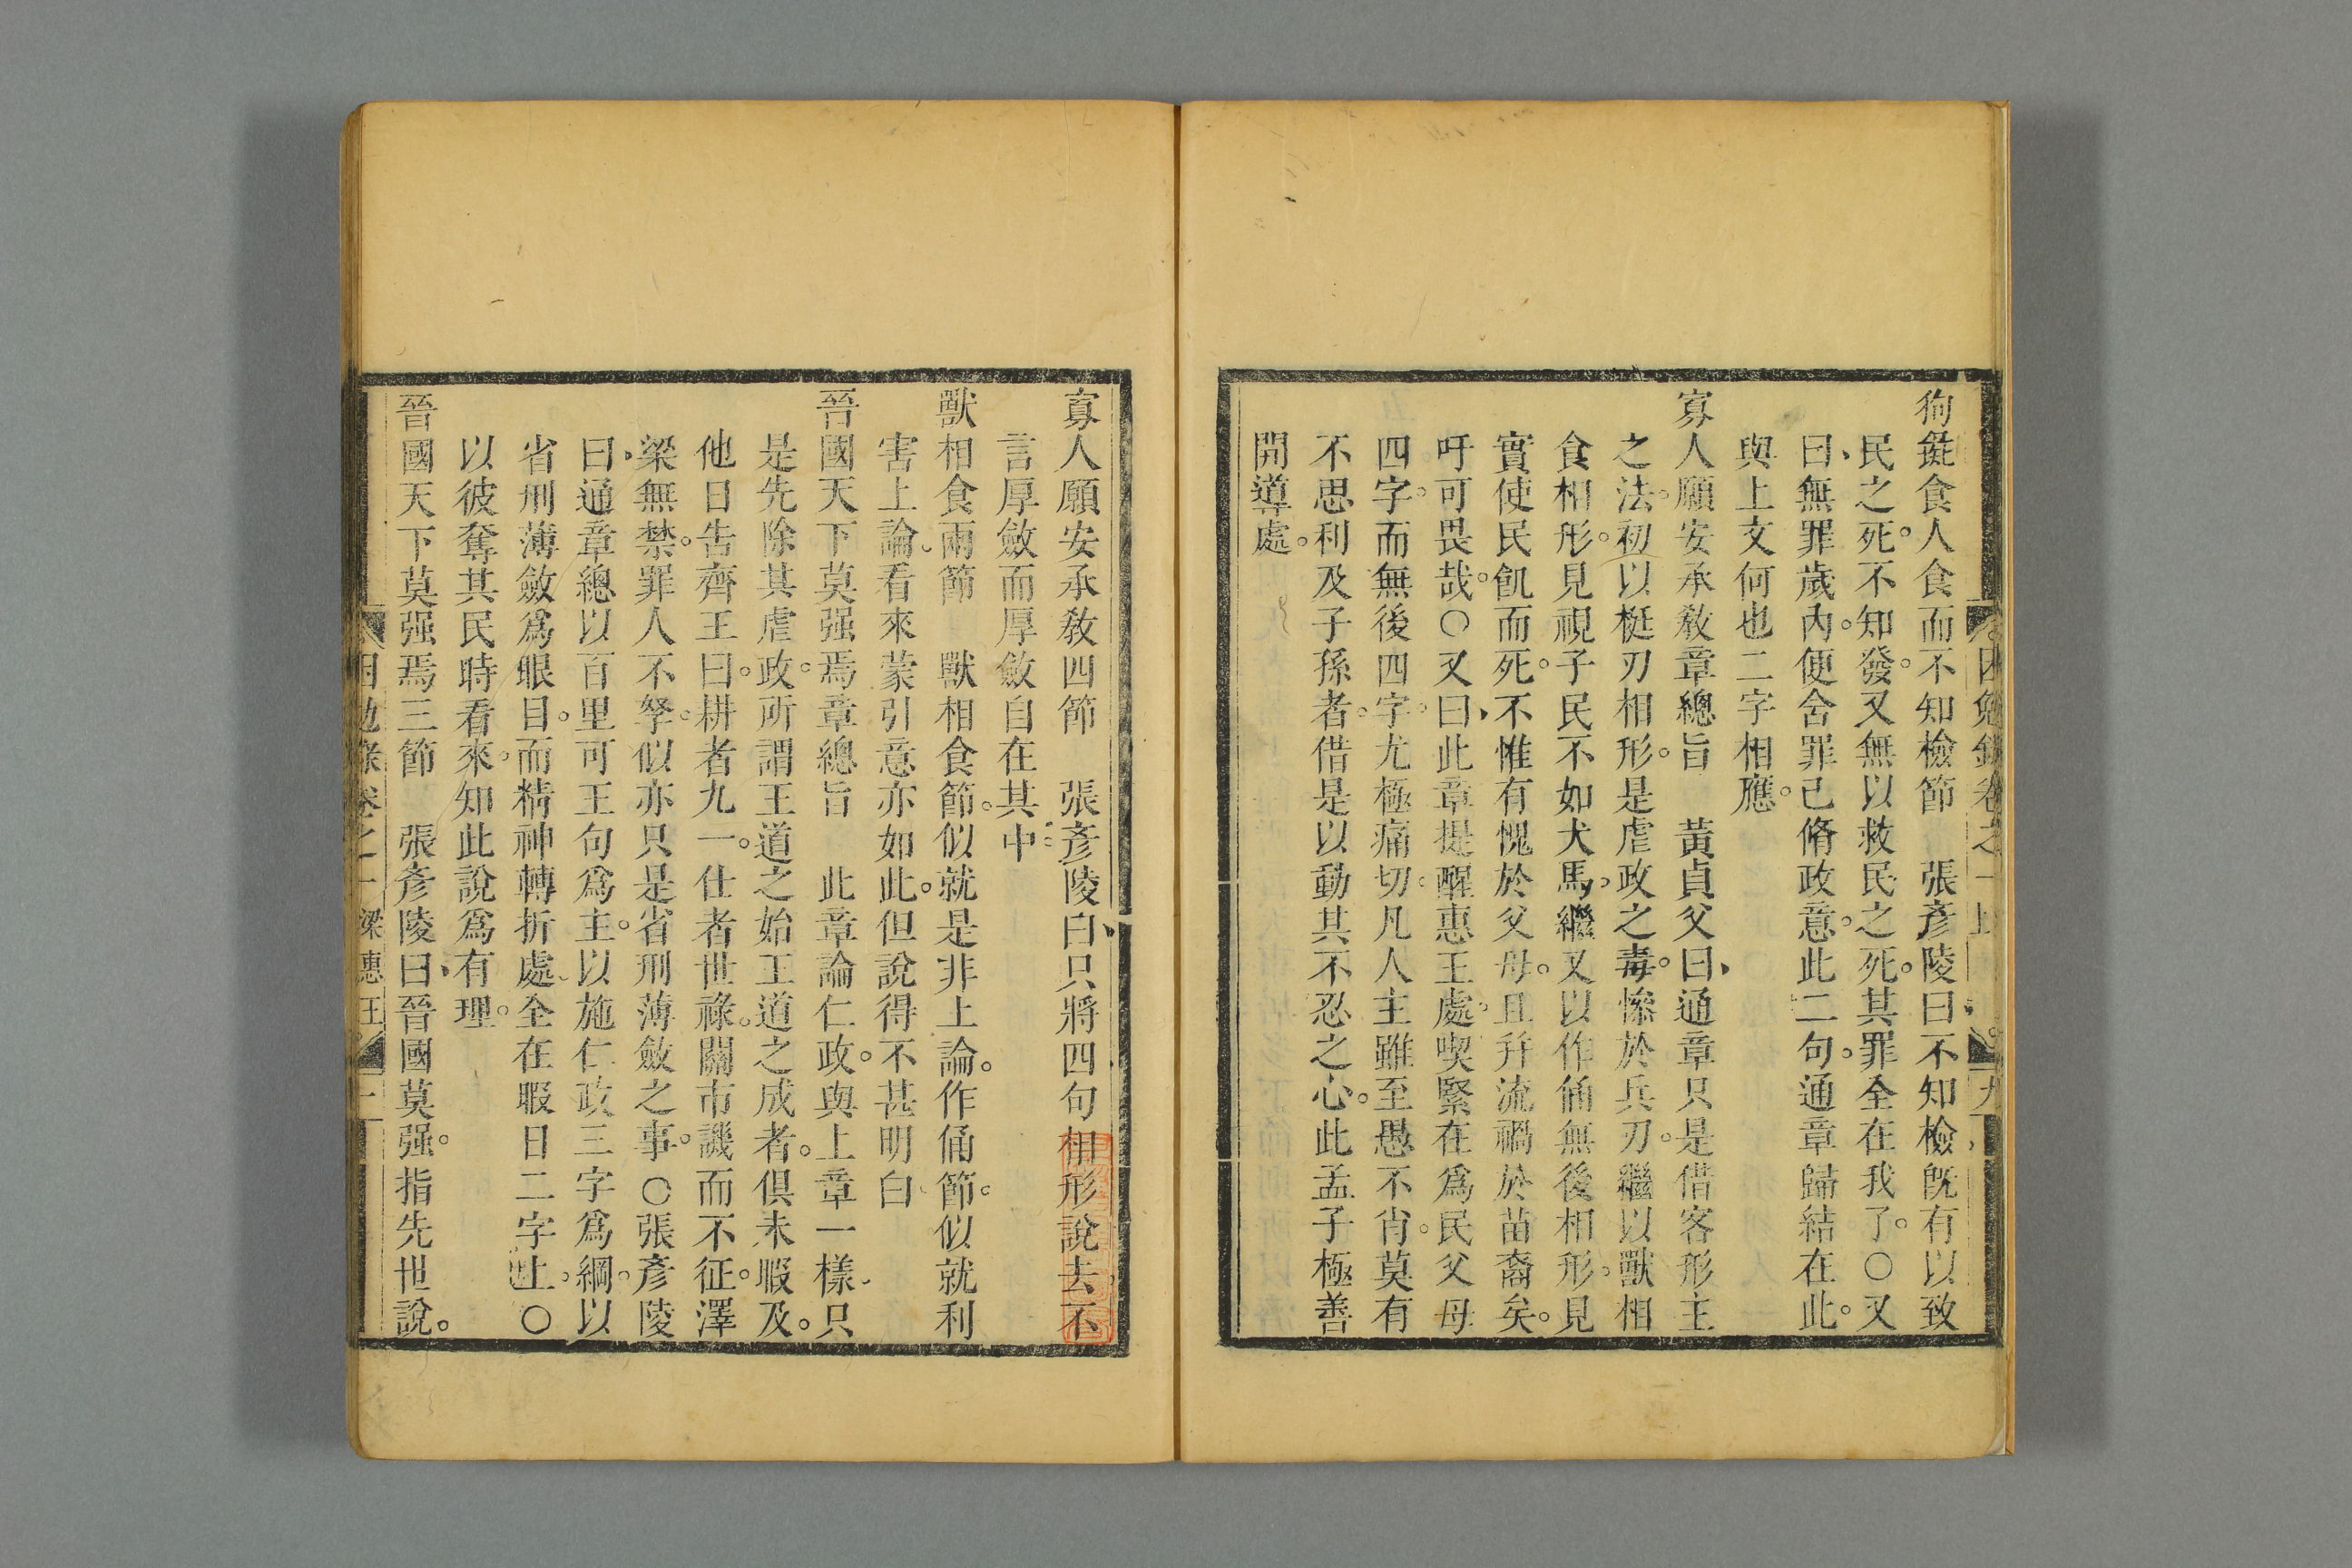 狗彘食人食而不知檢節　張彥陵曰不知檢旣有以致
民之死。不知發。又無以救民之死。其罪全在我了。○又
曰無罪歲內。便舍罪己脩政意。此二句。通章歸結在此。
與上文何也二字相應。
寡人願安承敎章總旨　黃貞父曰通章只是借客形主
之法。初以梃刃相形。是虐政之毒。慘於兵刃。繼以獸相
食相形。見視子民不如犬馬。繼又以作俑無後相形。見
實使民飢而死。不惟有愧於父母。且幷流禍於苗裔矣。
吁可畏哉。○又曰此章提醒惠王處。喫緊在爲民父母
四字。而無後四字。尤極痛切。凡人主雖至愚不肖。莫有
不思利及子孫者。借是以動其不忍之心。此孟子極善
開導處。
寡人願安承敎四節　張彥陵曰只將四句相形說去不
言厚斂而厚斂自在其中
獸相食兩節　獸相食節。似就是非上論。作俑節。似就利
害上論。看來蒙引意亦如此。但說得不甚明白
晉國天下莫强焉章總旨　此章論仁政。與上章一樣只
是先除其虐政。所謂王道之始王道之成者。俱未暇及。
他日告齊王曰。耕者九一。仕者世祿。關市譏而不征。澤
梁無禁。罪人不孥。似亦只是省刑薄斂之事。○張彥陵
曰通章總以百里可王句爲主。以施仁政三字爲綱。以
省刑薄斂爲眼目。而精神轉折處全在暇日二字上。○
以彼奪其民時看來。知此說爲有理。
晉國天下莫强焉三節　張彥陵曰晉國莫强。指先世說。